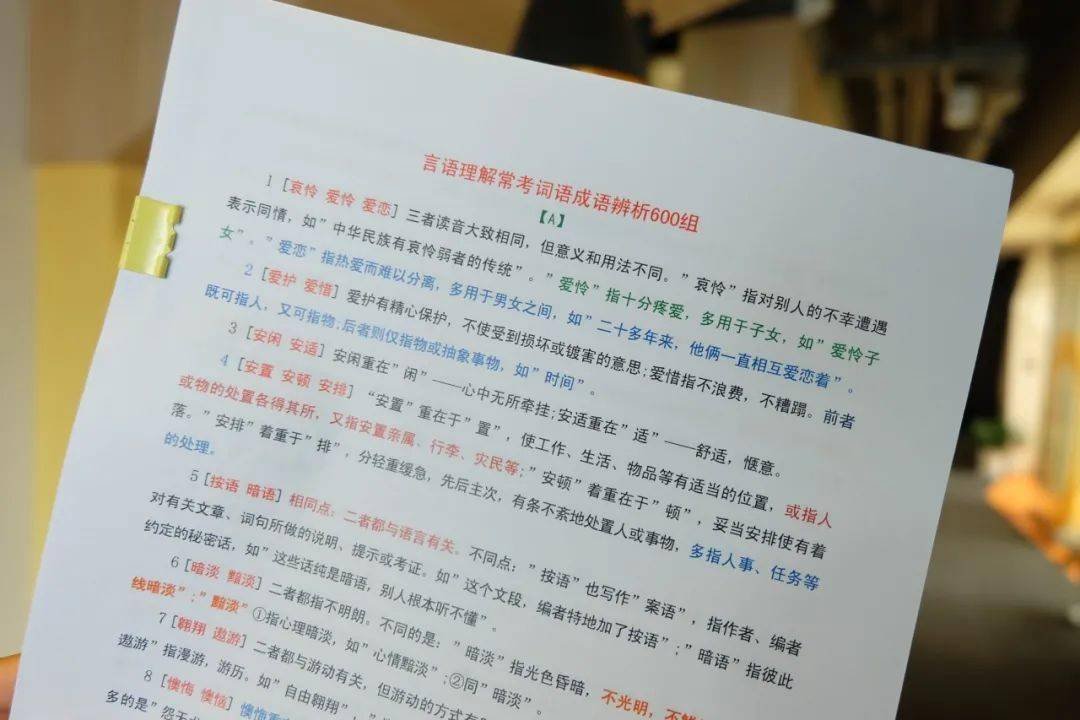 言语理解常考词语成语辨析600组
【A】
1 [哀怜 爱怜 爱恋] 三者读音大致相同，但意义和用法不同。”哀怜”指对别人的不幸遭遇
表示同情，如”中华民族有哀怜弱者的传统”。”爱怜”指十分疼爱，多用于子女，如”爱怜子
女”。”爱恋”指热爱而难以分离，多用于男女之间，如”二十多年来，他俩一直相互爱恋着”。
2 [爱护 爱惜] 爱护有精心保护，不使受到损坏或镀害的意思;爱惜指不浪费，不糟蹋。前者
既可指人，又可指物;后者则仅指物或抽象事物，如”时间”。
3 [安闲 安适] 安闲重在”闲”——心中无所牵挂;安适重在”适”——舒适，惬意。
4 [安置 安顿 安排] “安置”重在于”置”，使工作、生活、物品等有适当的位置，或指人
或物的处置各得其所，又指安置亲属、行李、灾民等;”安顿”着重在于”顿”，妥当安排使有着
落。”安排”着重于”排”，分轻重缓急，先后主次，有条不紊地处置人或事物，多指人事、任务等
的处理。
5 [按语 暗语] 相同点：二者都与语言有关。不同点：”按语”也写作”案语”，指作者、编者
对有关文章、词句所做的说明、提示或考证。如”这个文段，编者特地加了按语”;”暗语”指彼此
约定的秘密话，如”这些话纯是暗语，别人根本听不懂”。
6 [暗淡 黯淡] 二者都指不明朗。不同的是：”暗淡”指光色昏暗，不光明，不
线暗淡”;”黯淡”①指心理暗淡，如”心情黯淡”;②同”暗淡”。
7 [翱翔 遨游] 二者都与游动有关，但游动的方式有
遨游”指漫游，游历。如”自由翱翔”，”
8 [懊悔 懊恼] 懊悔
多的是”怨天